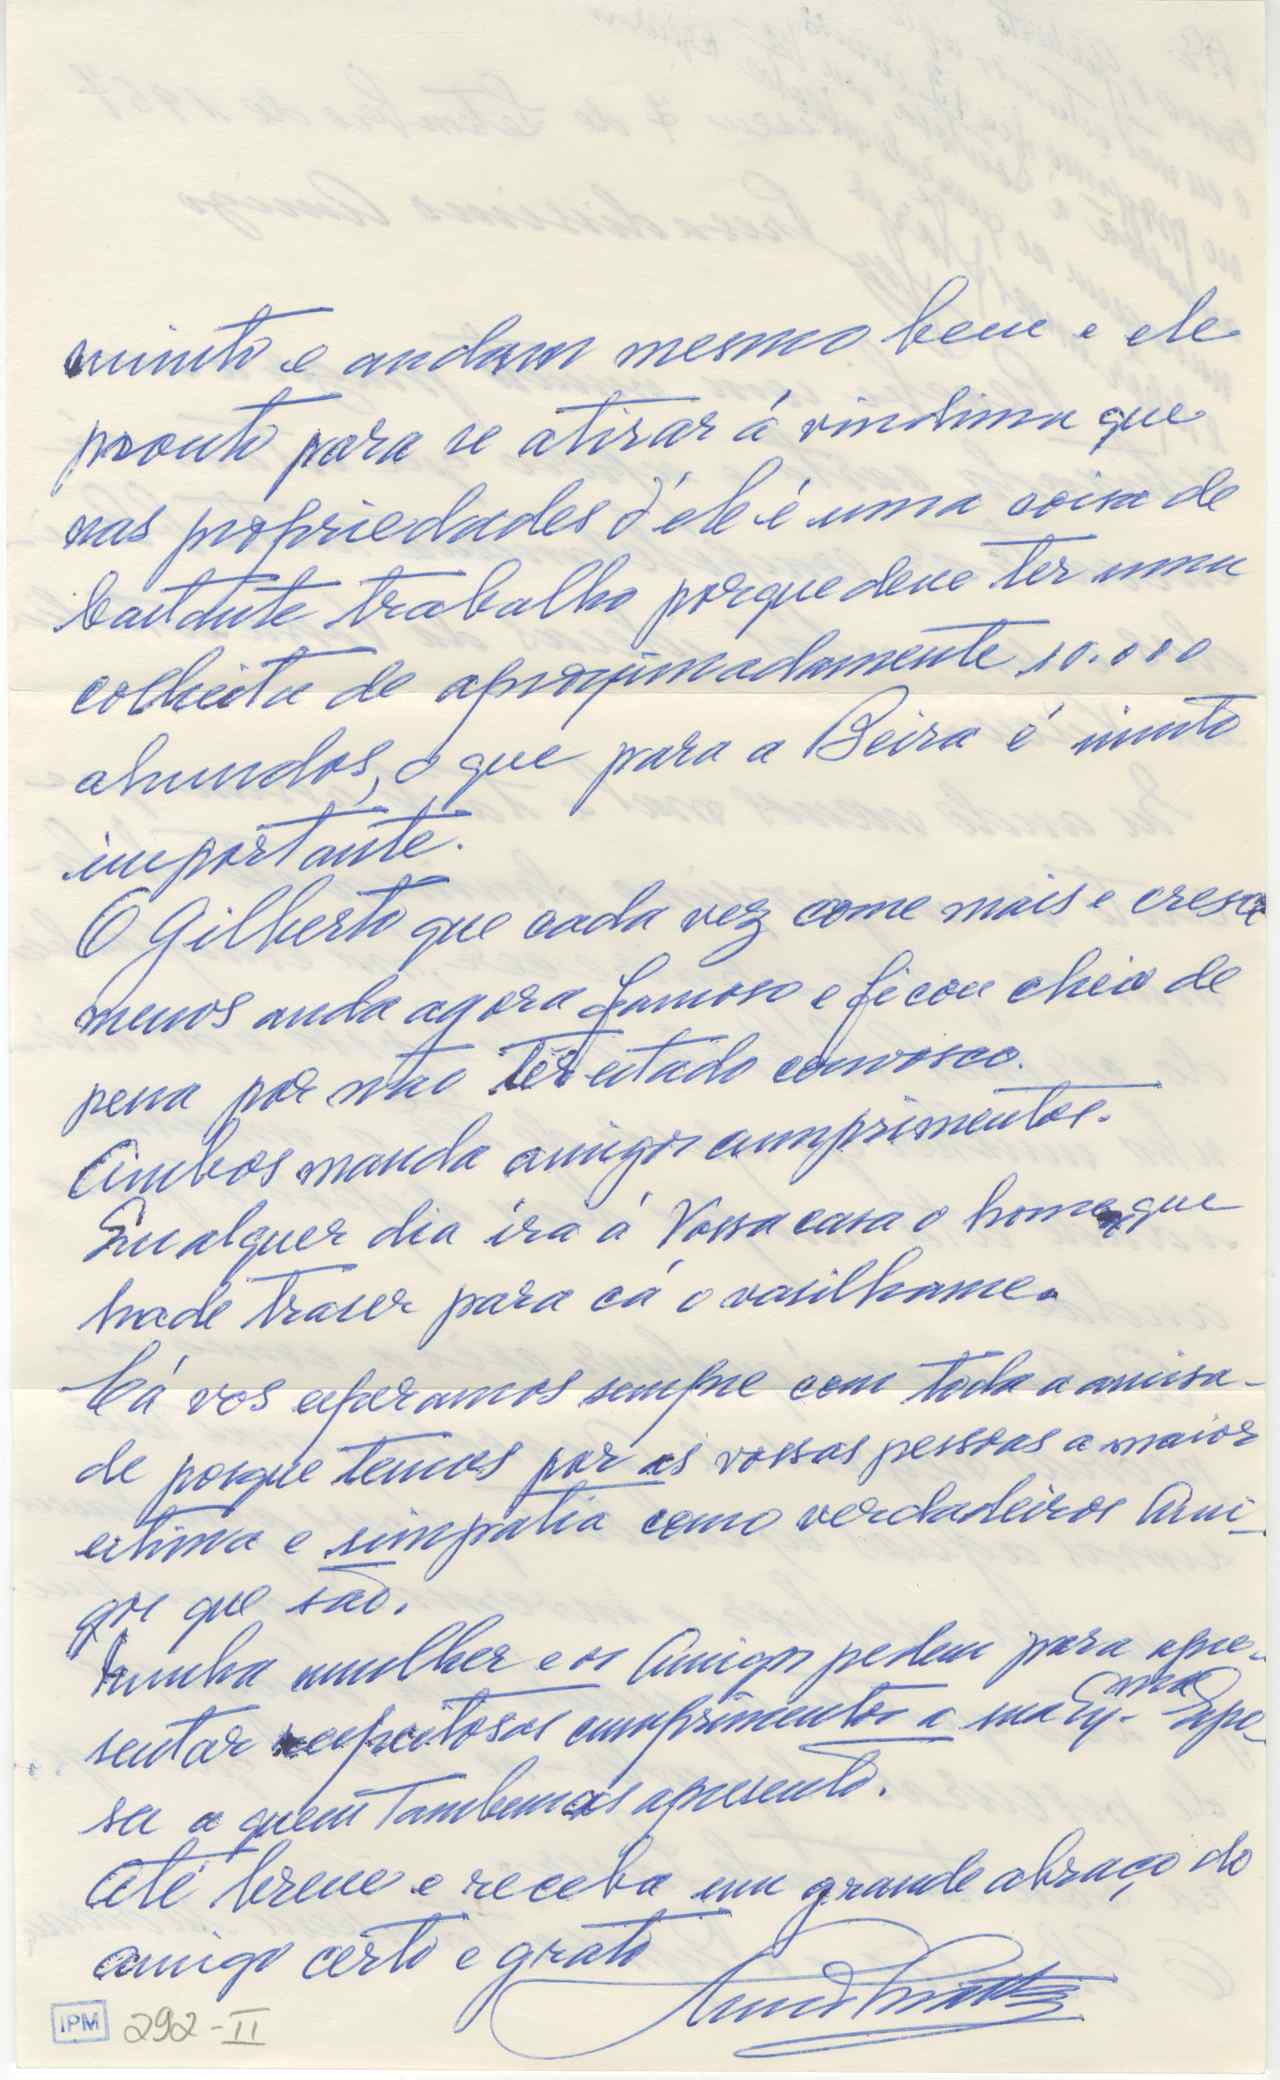 muito e andam mesmo bem e ele
pronto para se atirar á vindima que
nas propriedades d'ele é uma coisa de
bastante trabalho porque deve ter uma
colheita de aproximadamente 10.000
almudos, o que para a Beira é muito
importante.
O Gilberto que cada vez come mais e cresce
menos anda agora famoso e ficou cheio de
pena por não ter estado comvosco.
Ambos manda amigos cumprimentos.
Qualquer dia irá á Vossa casa o home que
hade traser para cá o vasilhame.
Cá vos esperamos sempre com toda a amisa-
de porque temos por as vossas pessoas a maior
estima e simpatia como verdadeiros Ami-
gos que são.
Minha mulher e os Amigos pedem para apre-
sentar respeitosos cumprimentos a sua Ex.ma Espo-
sa a quem tambem os apresento.
Até breve e receba um grande abraço do
amigo certo e grato
IPM 292-II